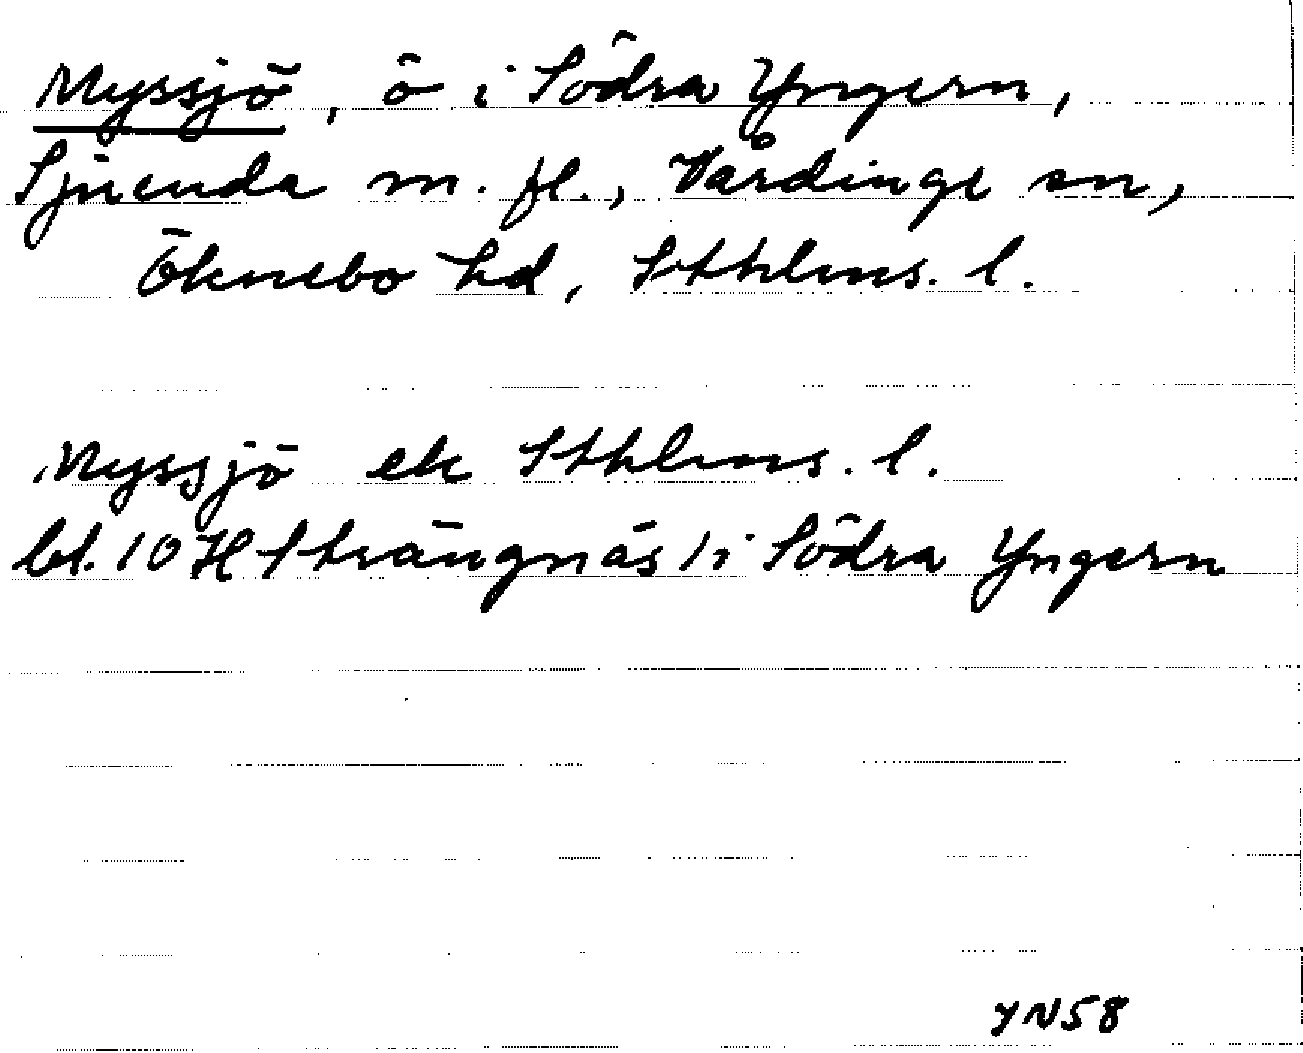 Myssjö, ö i Södra Yngern,
Sjuenda m. fl., Vårdinge sn,
Öknebo hd, Sthlms. l.
Myssjö ek Sthlms. l.
bl. 10 H Strängnäs / i Södra Yngern
YN58